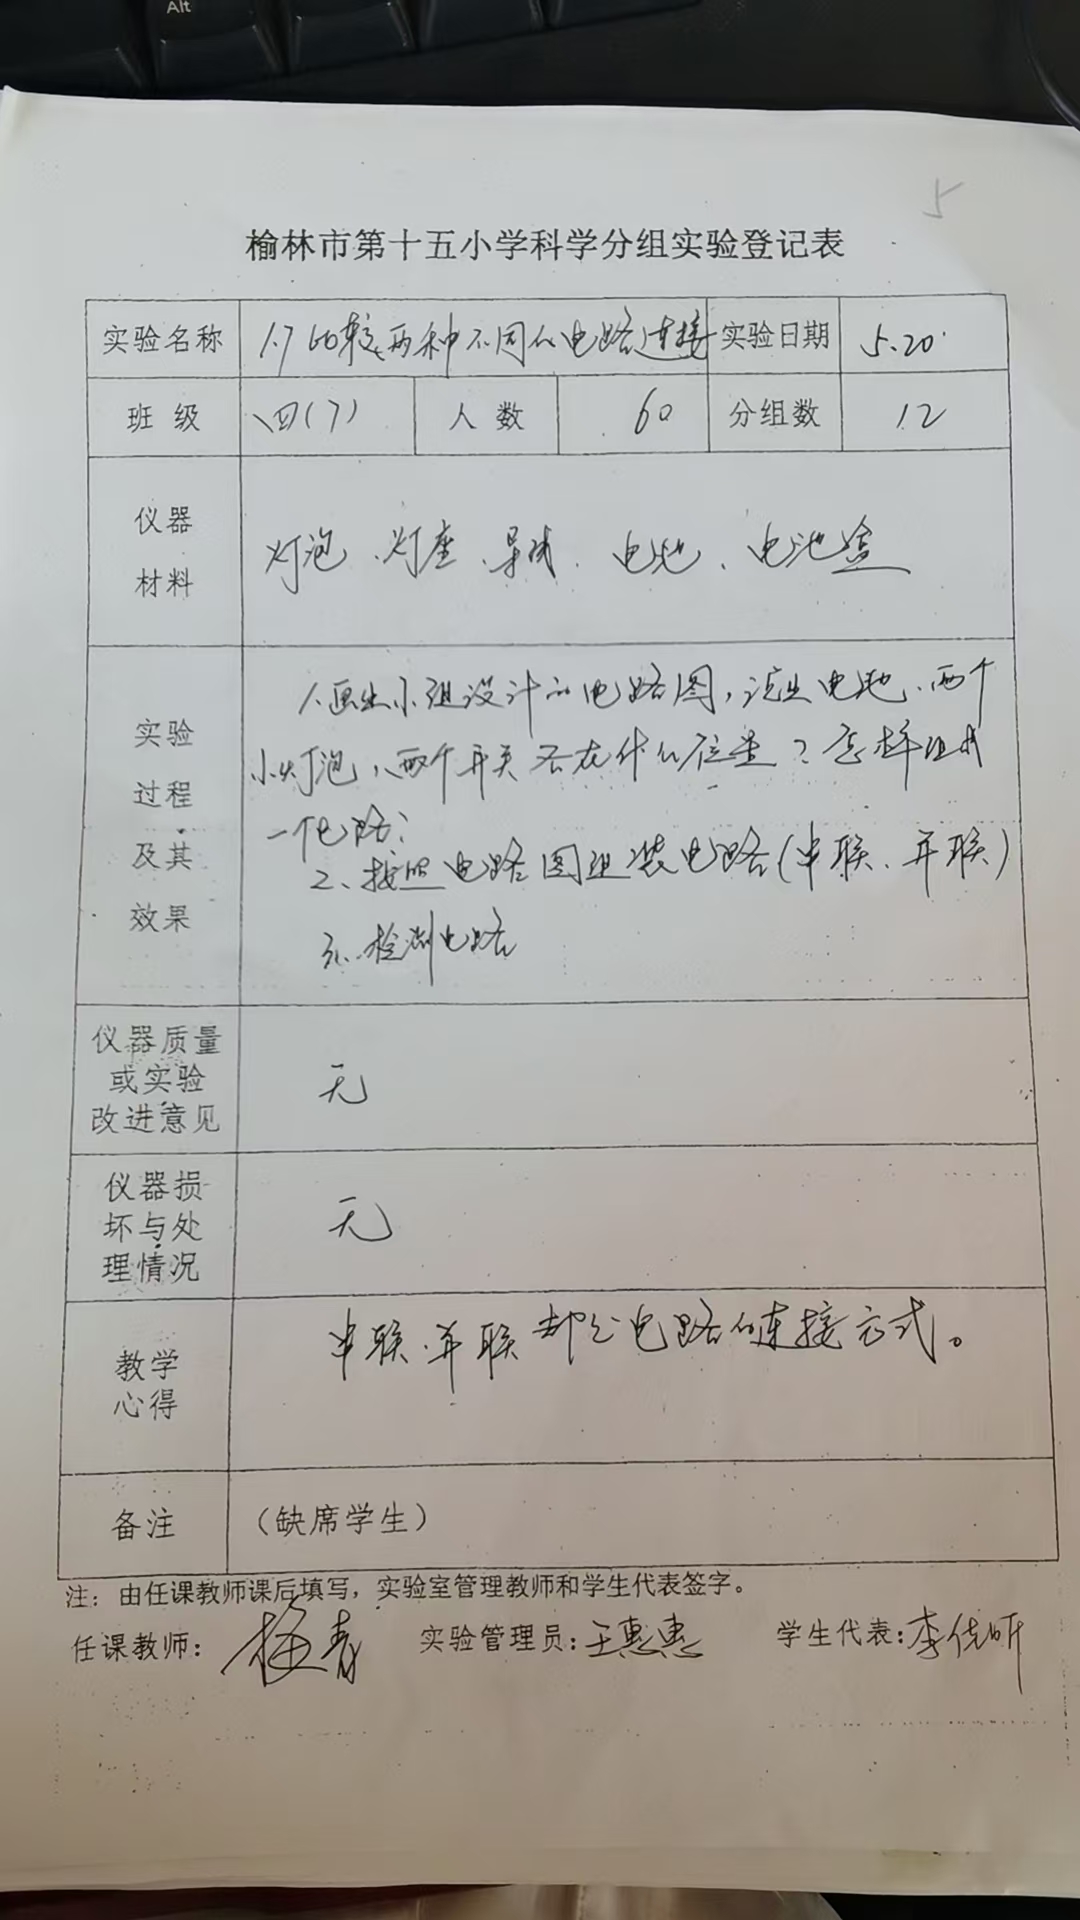 Alt
5
榆林市第十五小学科学分组实验登记表
实验名称 1.7比较两种不同的电路连接 实验日期 5.20
班 级 四(7) 人 数 60 分组数 12
仪器
材料
灯泡、灯座、导线、电池、电池盒
实验
过程
及其
效果
1.画出小组设计的电路图,说出电池、两个
小灯泡、两个开关各在什么位置?怎样组成
一个电路?
2、按照电路图组装电路(串联、并联)
3、检测电路
仪器质量
或实验
改进意见
无
仪器损
坏与处
理情况
无
教学
心得
串联、并联都是电路的连接方式。
备注 (缺席学生)
注: 由任课教师课后填写,实验室管理教师和学生代表签字。
任课教师: 实验管理员:王惠惠 学生代表:李佳昕